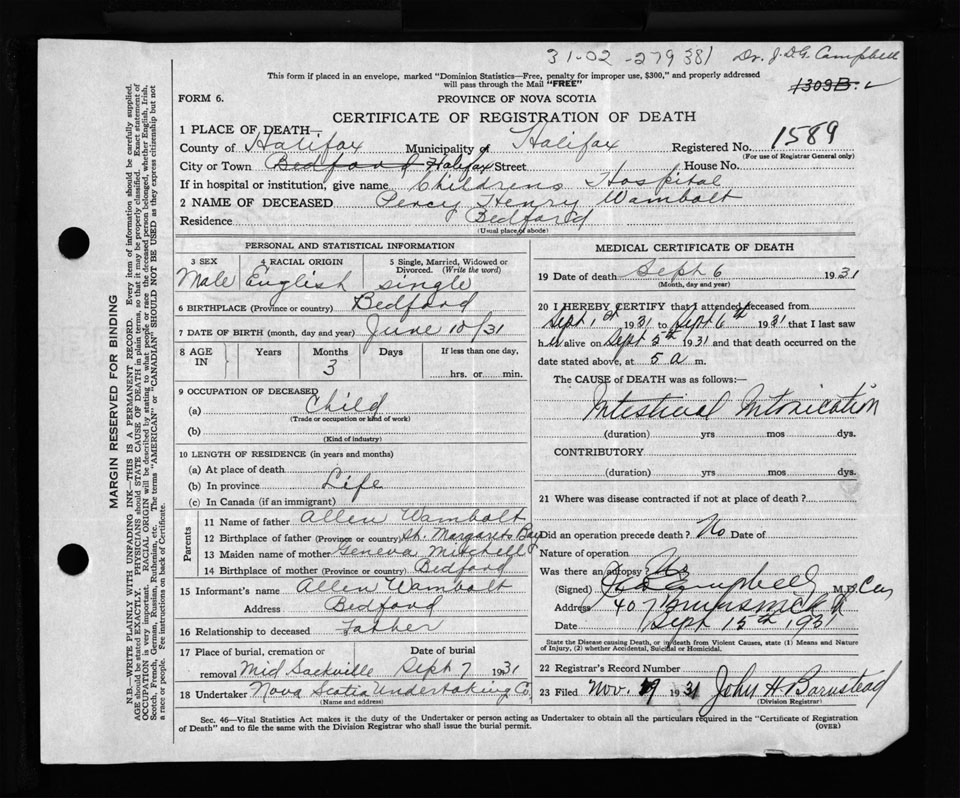 31-02-279381 Dr. J.D.G. Campbell
This form if placed in an envelope, marked "Dominion Statistics—Free, penalty for improper use, $300," and properly addressed
will pass through the Mail "FREE"
1309B.
FORM 6.
PROVINCE OF NOVA SCOTIA
CERTIFICATE OF REGISTRATION OF DEATH
1 PLACE OF DEATH—
County of Halifax Municipality of Halifax Registered No. 1589
(For use of Registrar General only)
City or Town Bedford Halifax Street House No.
If in hospital or institution, give name Childrens Hospital
2 NAME OF DECEASED Percy Henry Wambolt
Residence Bedford
(Usual place of abode)
PERSONAL AND STATISTICAL INFORMATION
3 SEX 4 RACIAL ORIGIN 5 Single, Married, Widowed or
Divorced. (Write the word)
Male English single
6 BIRTHPLACE (Province or country) Bedford
7 DATE OF BIRTH (month, day and year) June 10/31
8 AGE IN Years Months Days If less than one day,
3 hrs. or min.
9 OCCUPATION OF DECEASED
(a) Child
(Trade or occupation or kind of work)
(b)
(Kind of industry)
10 LENGTH OF RESIDENCE (in years and months)
(a) At place of death
(b) In province Life
(c) In Canada (if an immigrant)
Parents
11 Name of father Allen Wambolt
12 Birthplace of father (Province or country) St. Margarets Bay
13 Maiden name of mother Geneva Mitchell
14 Birthplace of mother (Province or country) Bedford
15 Informant's name Allen Wambolt
Address Bedford
16 Relationship to deceased Father
17 Place of burial, cremation or Date of burial
removal Mid Sackville Sept 7 1931
18 Undertaker Nova Scotia Undertaking Co.
(Name and address)
MEDICAL CERTIFICATE OF DEATH
19 Date of death Sept 6 1931
(Month, day and year)
20 I HEREBY CERTIFY that I attended deceased from
Sept 1st 1931 to Sept 6th 1931 that I last saw
h alive on Sept 5th 1931 and that death occurred on the
date stated above, at 5 a m.
The CAUSE of DEATH was as follows:—
Intestinal Intoxication
(duration) yrs mos dys.
CONTRIBUTORY
(duration) yrs mos dys.
21 Where was disease contracted if not at place of death?
Did an operation precede death? No Date of
Nature of operation
Was there an autopsy No
(Signed) Campbell M.D.
Address 407 Brunswick St
Date Sept 15th 1931
State the Disease causing Death, or in death from Violent Causes, state (1) Means and Nature
of Injury, (2) whether Accidental, Suicidal or Homicidal.
22 Registrar's Record Number
23 Filed Nov. 19 1931 John H Barnstead
(Division Registrar)
Sec. 46—Vital Statistics Act makes it the duty of the Undertaker or person acting as Undertaker to obtain all the particulars required in the "Certificate of Registration
of Death" and to file the same with the Division Registrar who shall issue the burial permit.
(OVER)
MARGIN RESERVED FOR BINDING
N.B.—WRITE PLAINLY WITH UNFADING INK—THIS IS A PERMANENT RECORD. Every item of information should be carefully supplied.
AGE should be stated EXACTLY. PHYSICIANS should STATE CAUSE OF DEATH in plain terms, so that it may be properly classified. Exact statement of
OCCUPATION is very important. RACIAL ORIGIN will be described by stating to what people or race the deceased person belonged, whether English, Irish,
Scotch, French, German, Russian, Ruthenian, etc. The terms "AMERICAN" or "CANADIAN" SHOULD NOT BE USED as they express citizenship but not
a race or people. See instructions on back of Certificate.